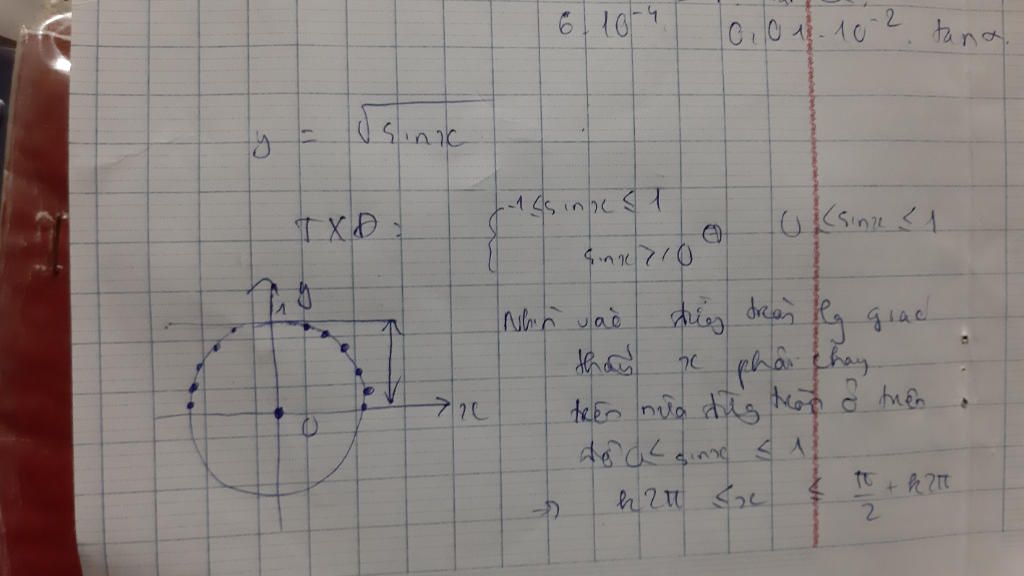 6.10⁻⁴ 0,01.10⁻². tanα.
y = √sinx
TXĐ: { -1 ≤ sinx ≤ 1
sinx ≥ 0 ⇔ 0 ≤ sinx ≤ 1
1 y
Nhìn vào đường tròn lg giác
thấy x phải chạy
x
trên nửa đường tròn ở trên
O
để 0 ≤ sinx ≤ 1
→ k2π ≤ x ≤ π/2 + k2π